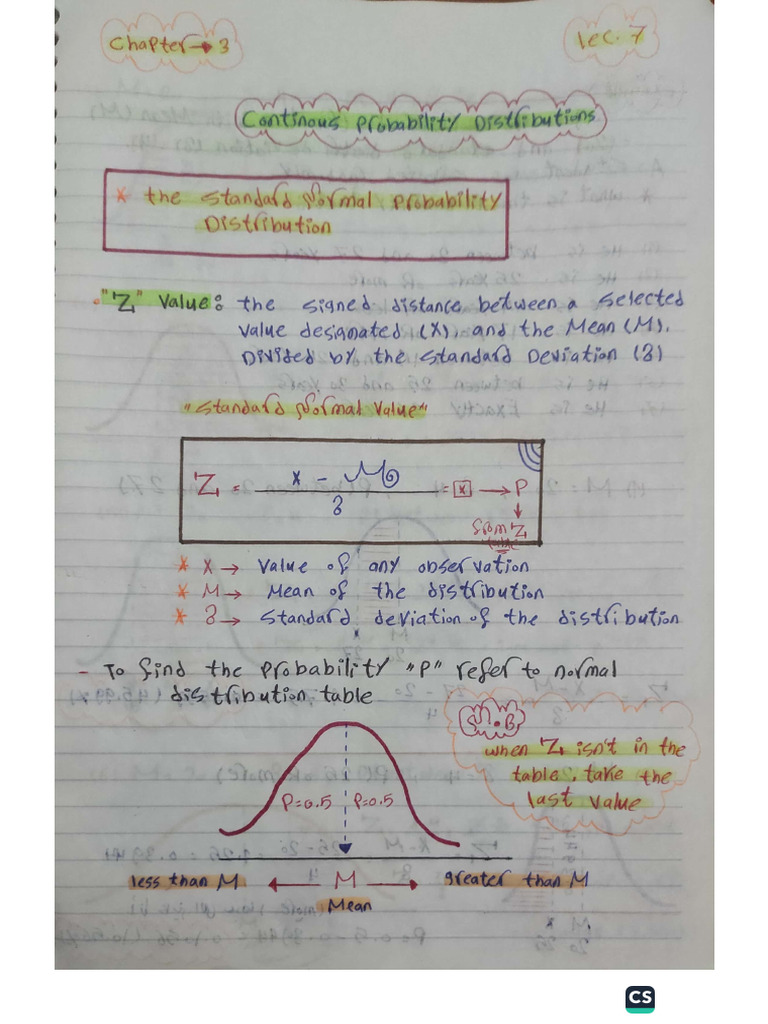 Chapter → 3
Lec. 7
Continous Probability Distributions
* the Standard Normal Probability
Distribution
• "Z" Value: the signed distance between a selected
Value designated (X), and the Mean (M).
Divided by the standard Deviation (8)
"Standard Normal Value"
Z = x - M / 8 = x → P
↓
from Z
table
* X → Value of any observation
* M → Mean of the distribution
* 8 → Standard deviation of the distribution
- To find the Probability "P" refer to normal
distribution table
N.B
when Z isn't in the
table, take the
last value
P=0.5 P=0.5
less than M ← M → greater than M
Mean
CS